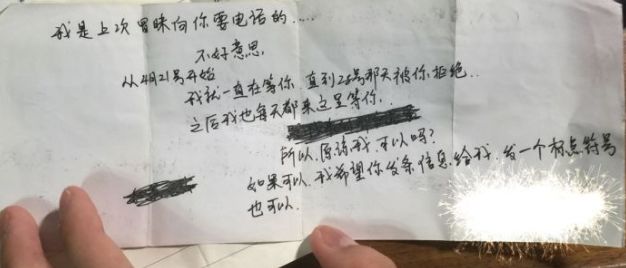 我是上次冒昧向你要电话的....
不好意思,
从4月21号开始
我就一直在等你,直到28号那天被你拒绝...
之后我也每天都来这里等你..
所以,原谅我,可以吗?
如果可以,我希望你发条信息给我,发一个标点符号
也可以.